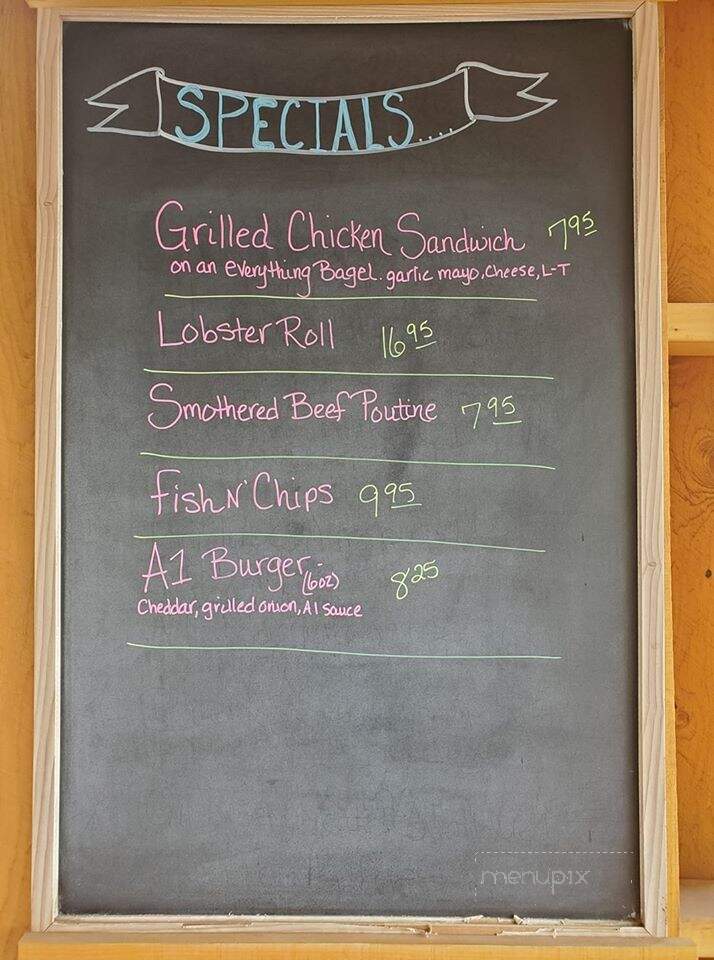 SPECIALS....
Grilled Chicken Sandwich 7 95
on an everything Bagel. garlic mayo, cheese, L-T
Lobster Roll 16 95
Smothered Beef Poutine 7 95
Fish N' Chips 9 95
A1 Burger (6oz) 8 25
Cheddar, grilled onion, A1 sauce
menupix